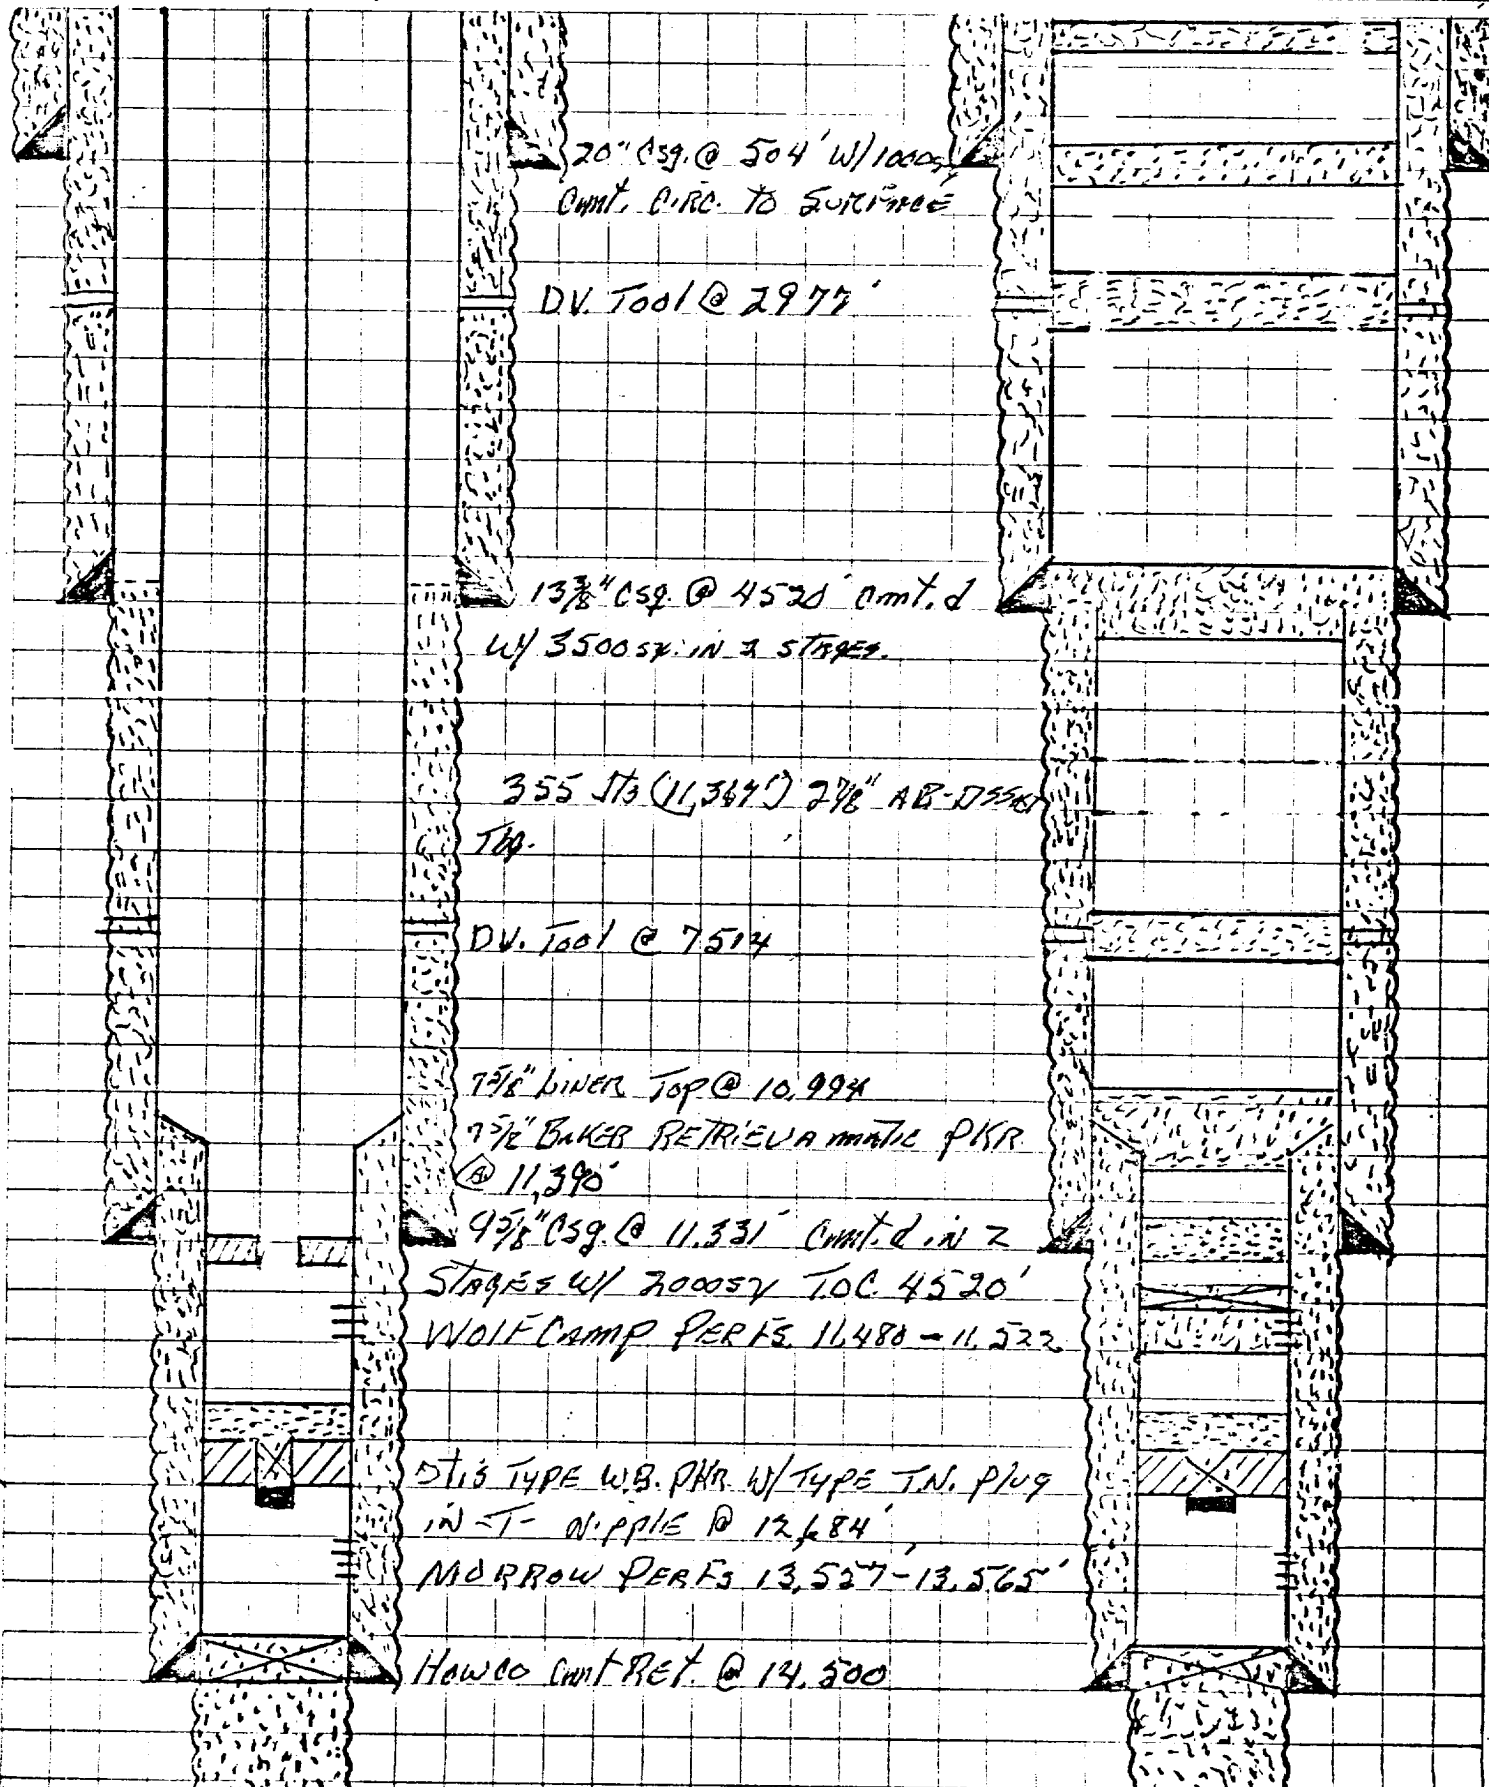 20" Csg. @ 504' W/1000sx
Cmt. Circ. To Surface
D.V. Tool @ 2977'
13⅜" Csg. @ 4520' Cmt.d
W/ 3500 sx. in 2 Stages.
355 Jts (11,367') 2⅞"
Tbg.
D.V. Tool @ 7514
7⅝" Liner Top @ 10,994
7⅝" Baker Retrievamatic PKR.
@ 11,390'
9⅝" Csg. @ 11,331' Cmt.d in 2
Stages W/ 2000sx TOC 4520'
Wolfcamp Perfs. 11,480 - 11,522
Otis Type W.B. PKR. W/ Type T.N. Plug
in -T- Nipple @ 12,684'
Morrow Perfs 13,527'-13,565'
Howco Cmt Ret. @ 14,500